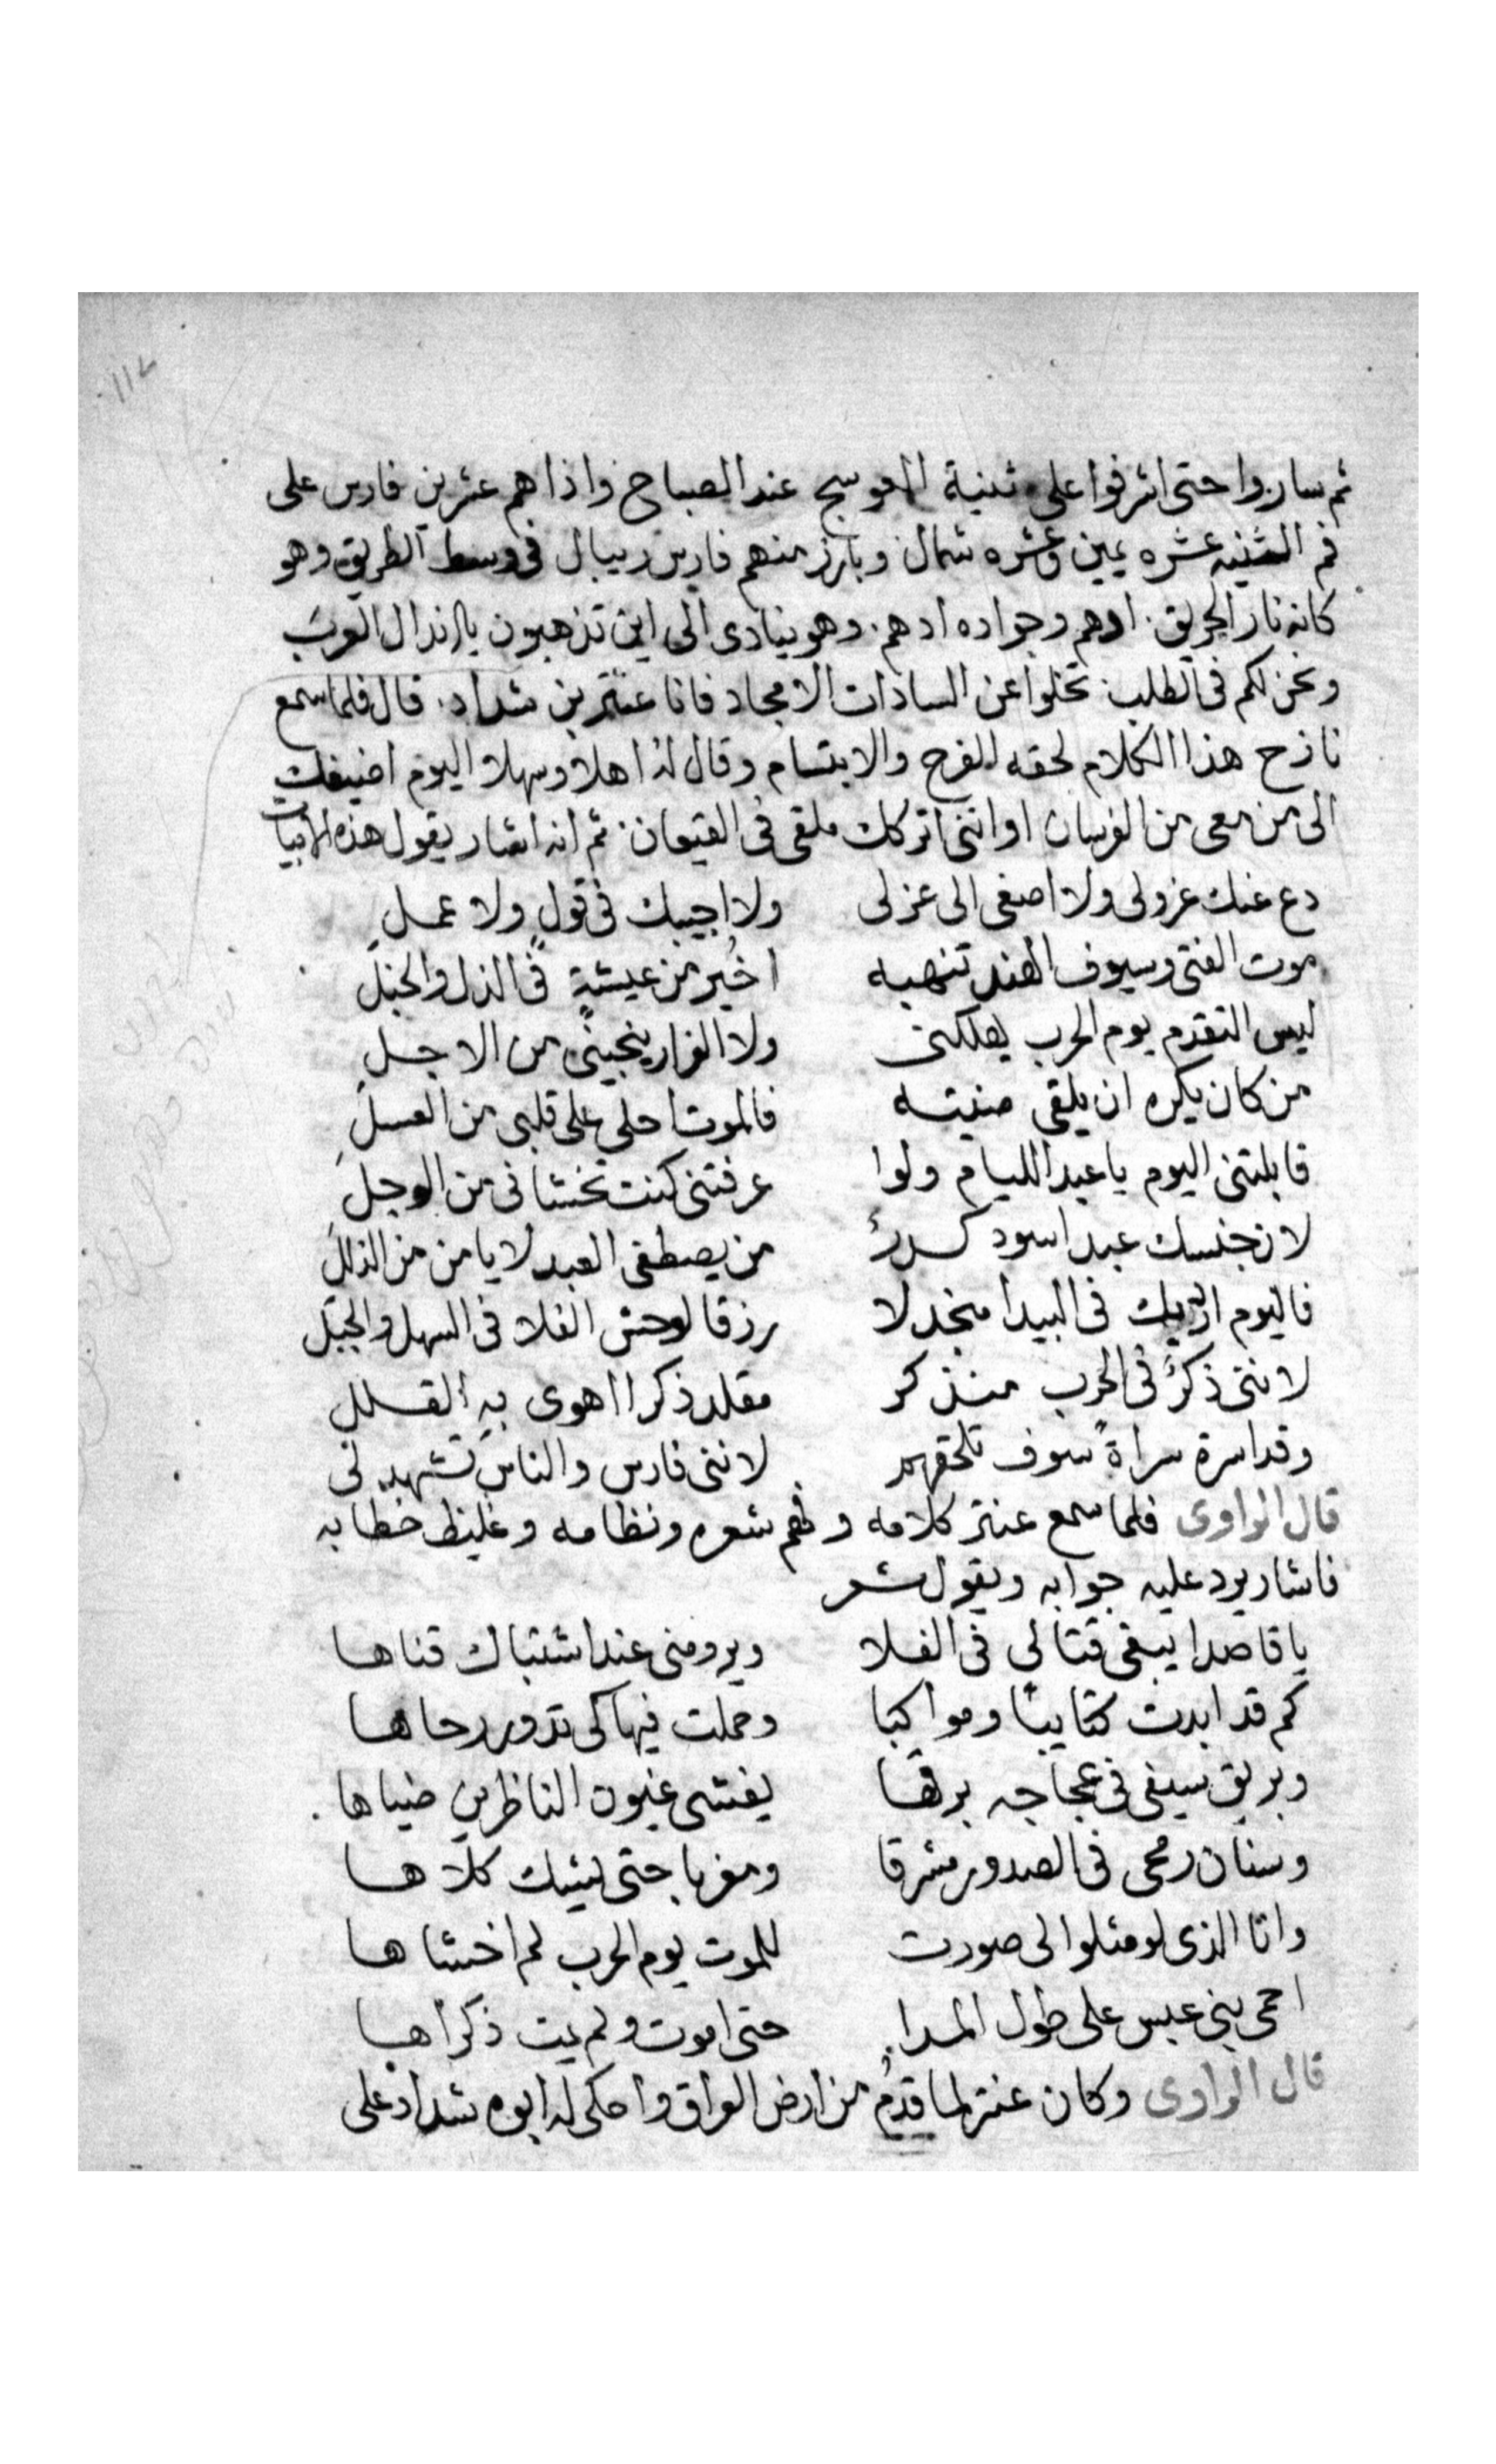 ثم ساروا حتى اشرفوا على ثنية العوسج عند الصباح واذا هم عشرين فارس على
فم الثنيه عشره يمين وعشره شمال وبارز منهم فارس ريبال فى وسط الطريق وهو
كانه نار الحريق ادهم وجواده ادهم وهو ينادى الى اين تذهبون يا اندال العرب
ونحن لكم فى الطلب تخلوا عن السادات الامجاد فانا عنتر بن شداد قال فلما سمع
نازح هذا الكلام لحقه الفرح والابتسام وقال له اهلا وسهلا اليوم اضيفك
الى من معى من الفرسان او اننى اتركك ملقى فى القيعان ثم انه اشار يقول هذه الابيات
دع عنك عزولى ولا اصغى الى عزلى ولا اجيبك فى قول ولا عمل
موت الفتى وسيوف الهند تنهبه اخير من عيشة فى الذل والخبل
ليس التقدم يوم الحرب يهلكنى ولا الفرار ينجينى من الاجل
من كان يكره ان يلقى منيته فالموت احلى على قلبى من العسل
قابلتنى اليوم يا عبد الليام ولوا عرفتنى كنت تخشانى من الوجل
لان جنسك عبد اسود من يصطفى العبد لا يامن من الذلل
فاليوم ارديك فى البيدا منجدلا رزقا لوحش الفلا فى السهل والجبل
لاننى ذكرٌ فى الحرب منذكر مقلد ذكرا اهوى به القلل
وقد اسرة سراة سوف تلحقهم لاننى فارس والناس تشهد لى
قال الراوى فلما سمع عنتر كلامه وفهم شعره ونظامه وغليظ خطابه
فاشار يرد عليه جوابه ويقول شعر
يا قاصدا يبغى قتالى فى الفلا ويرومنى عند اشتباك قناها
كم قد ابدت كتايبا ومواكبا وحملت فيها كى تدور رحاها
وبريق سيفى فى عجاجه برقها يغشى عيون الناظرين ضياها
وسنان رمحى فى الصدور مشرقا ومغربا حتى يشك كلاها
وانا الذى لو مثلوا لى صورت للموت يوم الحرب لم اخشاها
احمى بنى عبس على طول المدا حتى اموت ولم يمت ذكراها
قال الراوى وكان عنتر لما قدم من ارض العراق واحكى له ابوه شداد على